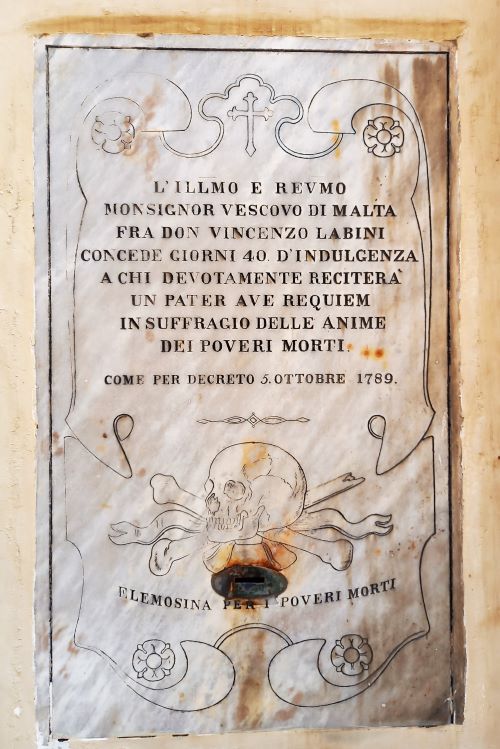 L'ILLMO E REVMO
MONSIGNOR VESCOVO DI MALTA
FRA DON VINCENZO LABINI
CONCEDE GIORNI 40. D'INDULGENZA
A CHI DEVOTAMENTE RECITERA'
UN PATER AVE REQUIEM
IN SUFFRAGIO DELLE ANIME
DEI POVERI MORTI.
COME PER DECRETO 5. OTTOBRE 1789.
ELEMOSINA PER I POVERI MORTI